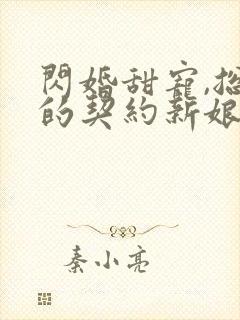 閃婚甜寵,總
的契約新娘
秦小亮